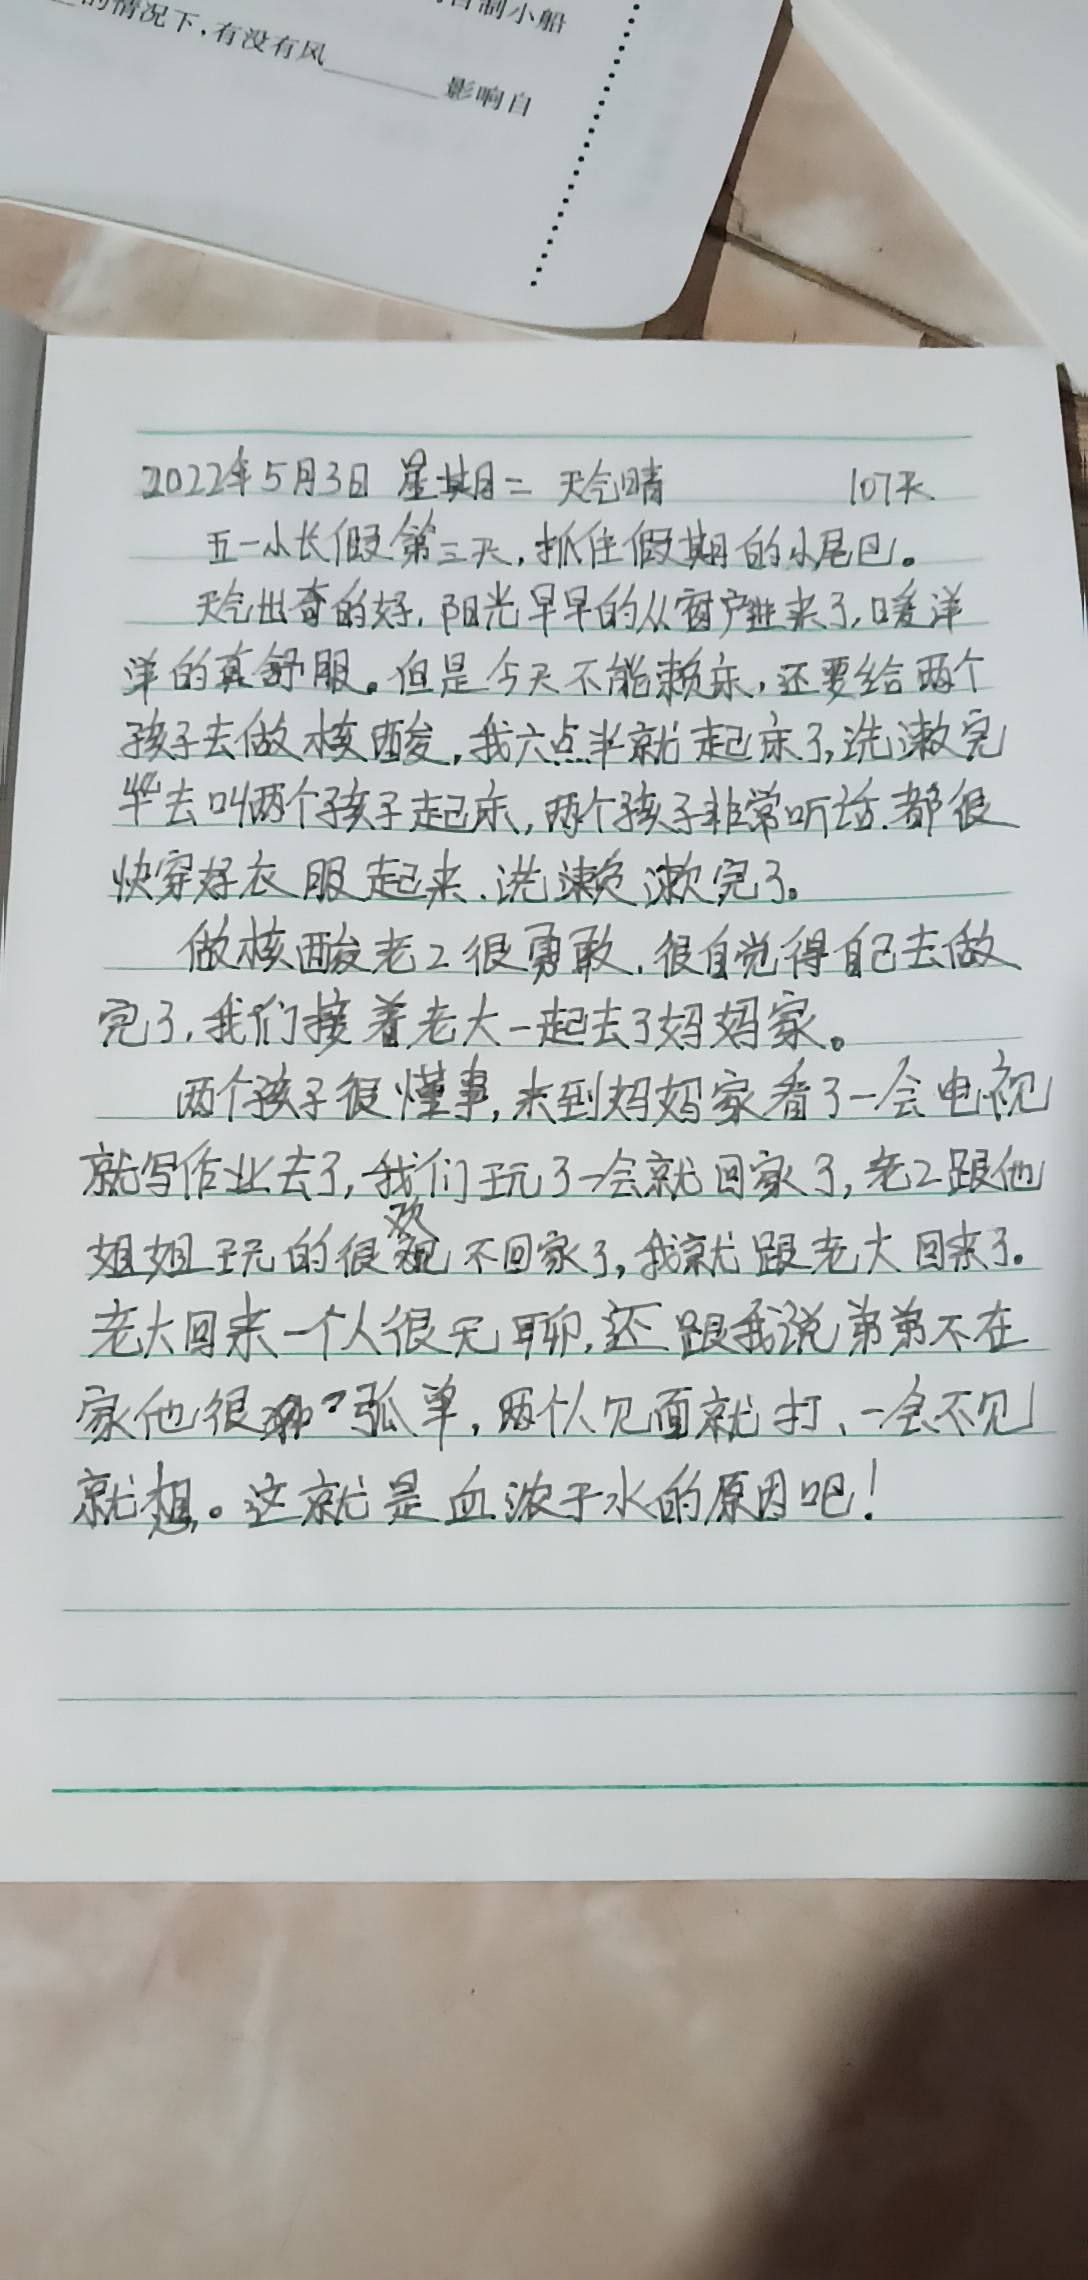 自制小船
的情况下,有没有风______影响自
2022年5月3日 星期二 天气晴 107天
五一小长假第三天,抓住假期的小尾巴。
天气出奇的好,阳光早早的从窗户进来了,暖洋
洋的真舒服。但是今天不能赖床,还要给两个
孩子去做核酸,我六点半就起床了,洗漱完
毕去叫两个孩子起床,两个孩子非常听话.都很
快穿好衣服起来.洗漱完了。
做核酸老2很勇敢,很自觉得自己去做
完了,我们接着老大一起去了妈妈家。
两个孩子很懂事,来到妈妈家看了一会电视
就写作业去了,我们玩了一会就回家了,老2跟他
姐姐玩的很欢不回家了,我就跟老大回来了。
老大回来一个人很无聊,还跟我说弟弟不在
家他很孤单,两个人见面就打、一会不见
就想。这就是血浓于水的原因吧!